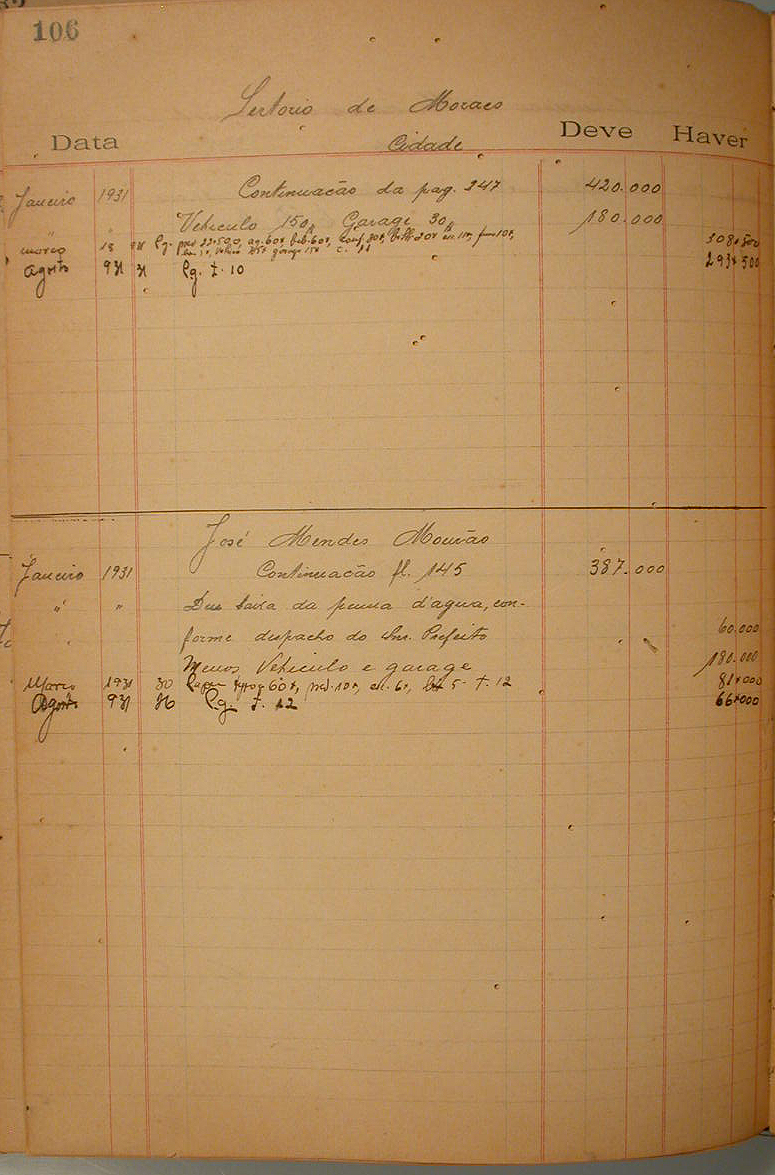 106
Sertorio de Moraes
Data Cidade Deve Haver
Janeiro 1931 Continuacão da pag. 247 420.000
" " Vehiculo 150$ Garage 30$ 180.000
março 18 931 Pg. 22.500, ag. 60$ 60$, 20$ 10$, 308$500
garage 15$
Agosto 931 31 Pg. t. 10 293$500
José Mendes Mourão
Janeiro 1931 Continuacão fl. 145 387.000
" " Deu baixa da penna d'agua, con-
" forme despacho do Snr. Prefeito 60.000
Menos Vehiculo e garage 180.000
Março 1931 30 60$, pred. 10$, 6$, 5- t. 12 81$000
Agosto 931 26 Pg. t. 12 66$000